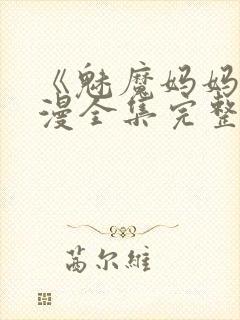 《魅魔妈妈
漫全集完整
芮尔维